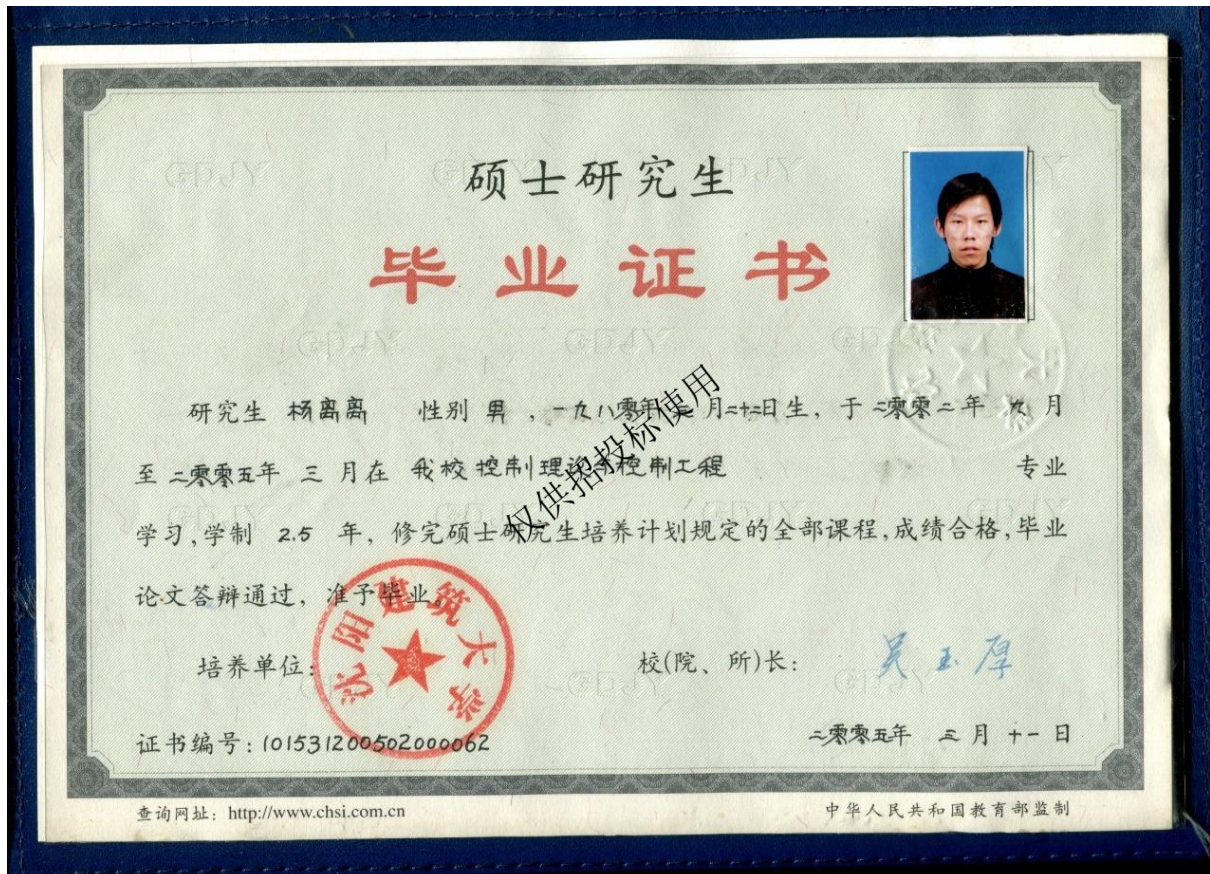 硕士研究生
毕业证书
研究生 杨离离 性别 男,一九八零年 月二十二日生,于二零零二年 九月
至二零零五年 三 月在 我校控制理论 控制工程 专业
学习,学制 2.5 年,修完硕士研究生培养计划规定的全部课程,成绩合格,毕业
论文答辩通过,准予毕业。
仅供招投标使用
沈阳建筑大学
培养单位: 校(院、所)长: 吴玉厚
证书编号:101531200502000062 二零零五年 三月十一日
查询网址:http://www.chsi.com.cn 中华人民共和国教育部监制